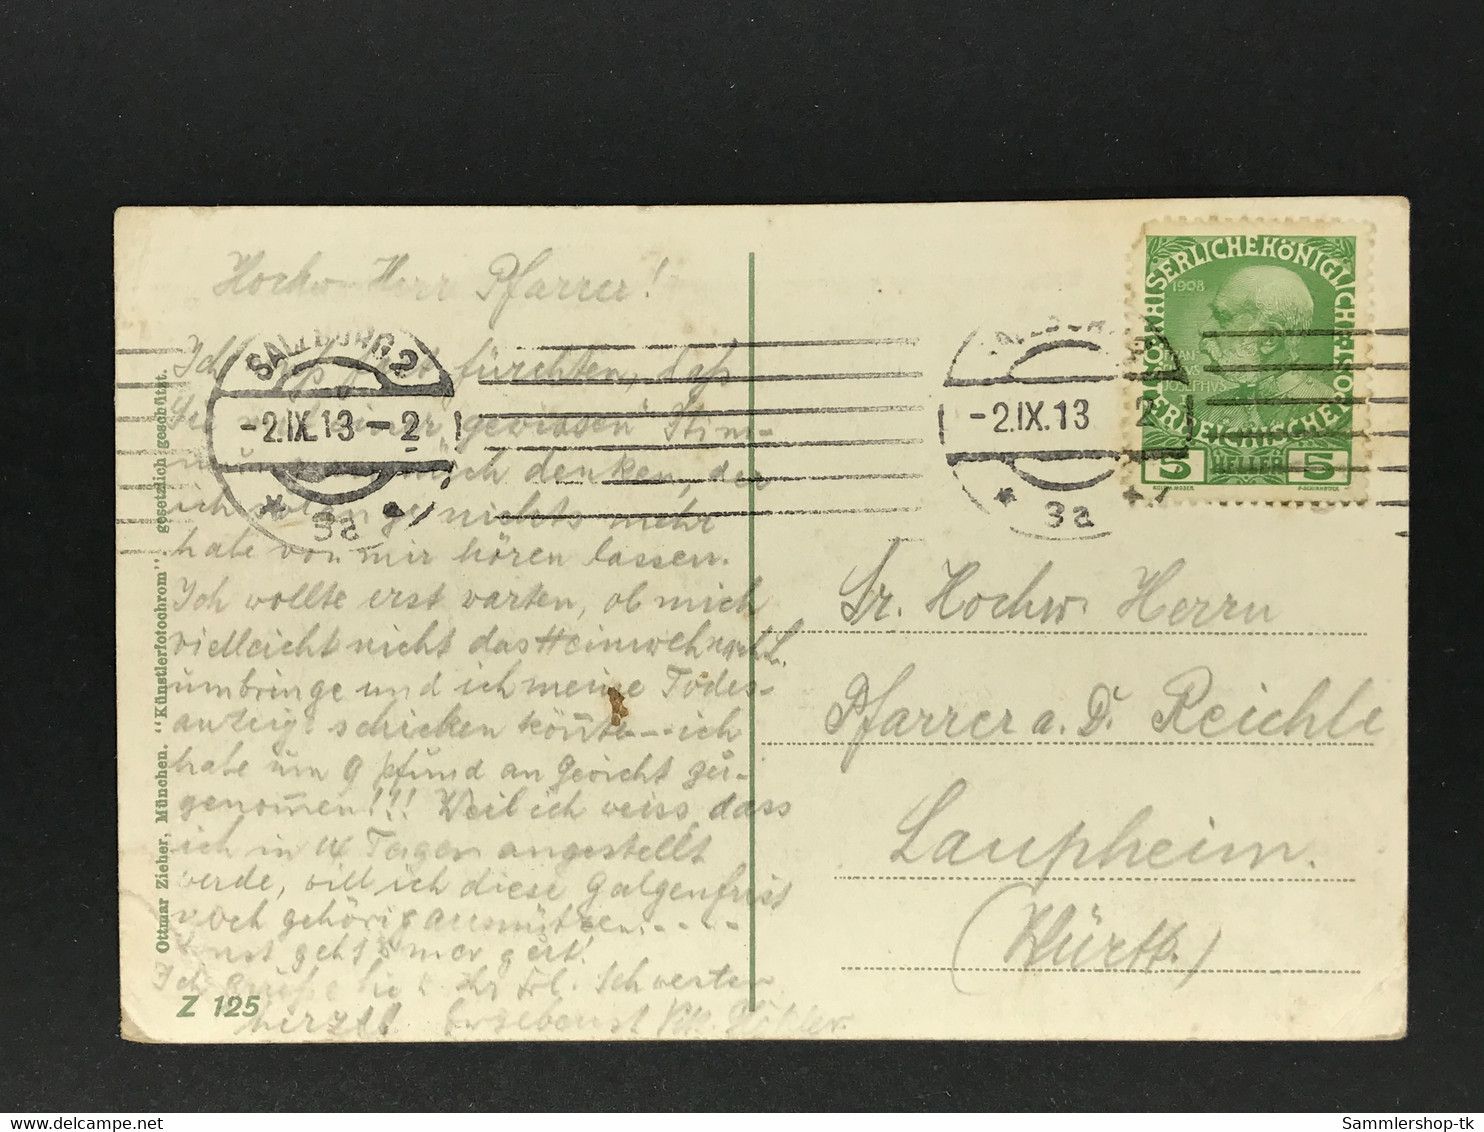 Hochw. Herr Pfarrer!
Ich fürchten, daß
einer gewissen Stim-
mich denken, der
ich nichts mehr
habe von mir hören lassen.
Ich wollte erst warten, ob mich
vielleicht nicht das Heimweh
umbringe und ich meine Todes-
anzeige schicken kön̄te --- ich
habe um 9 Pfund an Gewicht zu-
genom̄en!!! Weil ich weiss, dass
ich in 14 Tagen angestellt
werde, will ich diese Galgenfrist
noch gehörig ausnützen. - - - -
Sonst geht's mer gut!
Ich grüße Sie Ihr Frl. Schwester
herzl. Ergebenst
SALZBURG 2
-2.IX.13-2
* 3a *
SALZBURG 2
-2.IX.13 2
* 3a *
KAISERLICHE KÖNIGLICHE ÖSTERREICHISCHE POST
1908
5 HELLER 5
Sr. Hochw. Herrn
Pfarrer a. D. Reichle
Laupheim.
(Württb.)
Ottmar Zieher, München. "Künstlerfotochrom". gesetzlich geschützt.
Z 125
Sammlershop-tk